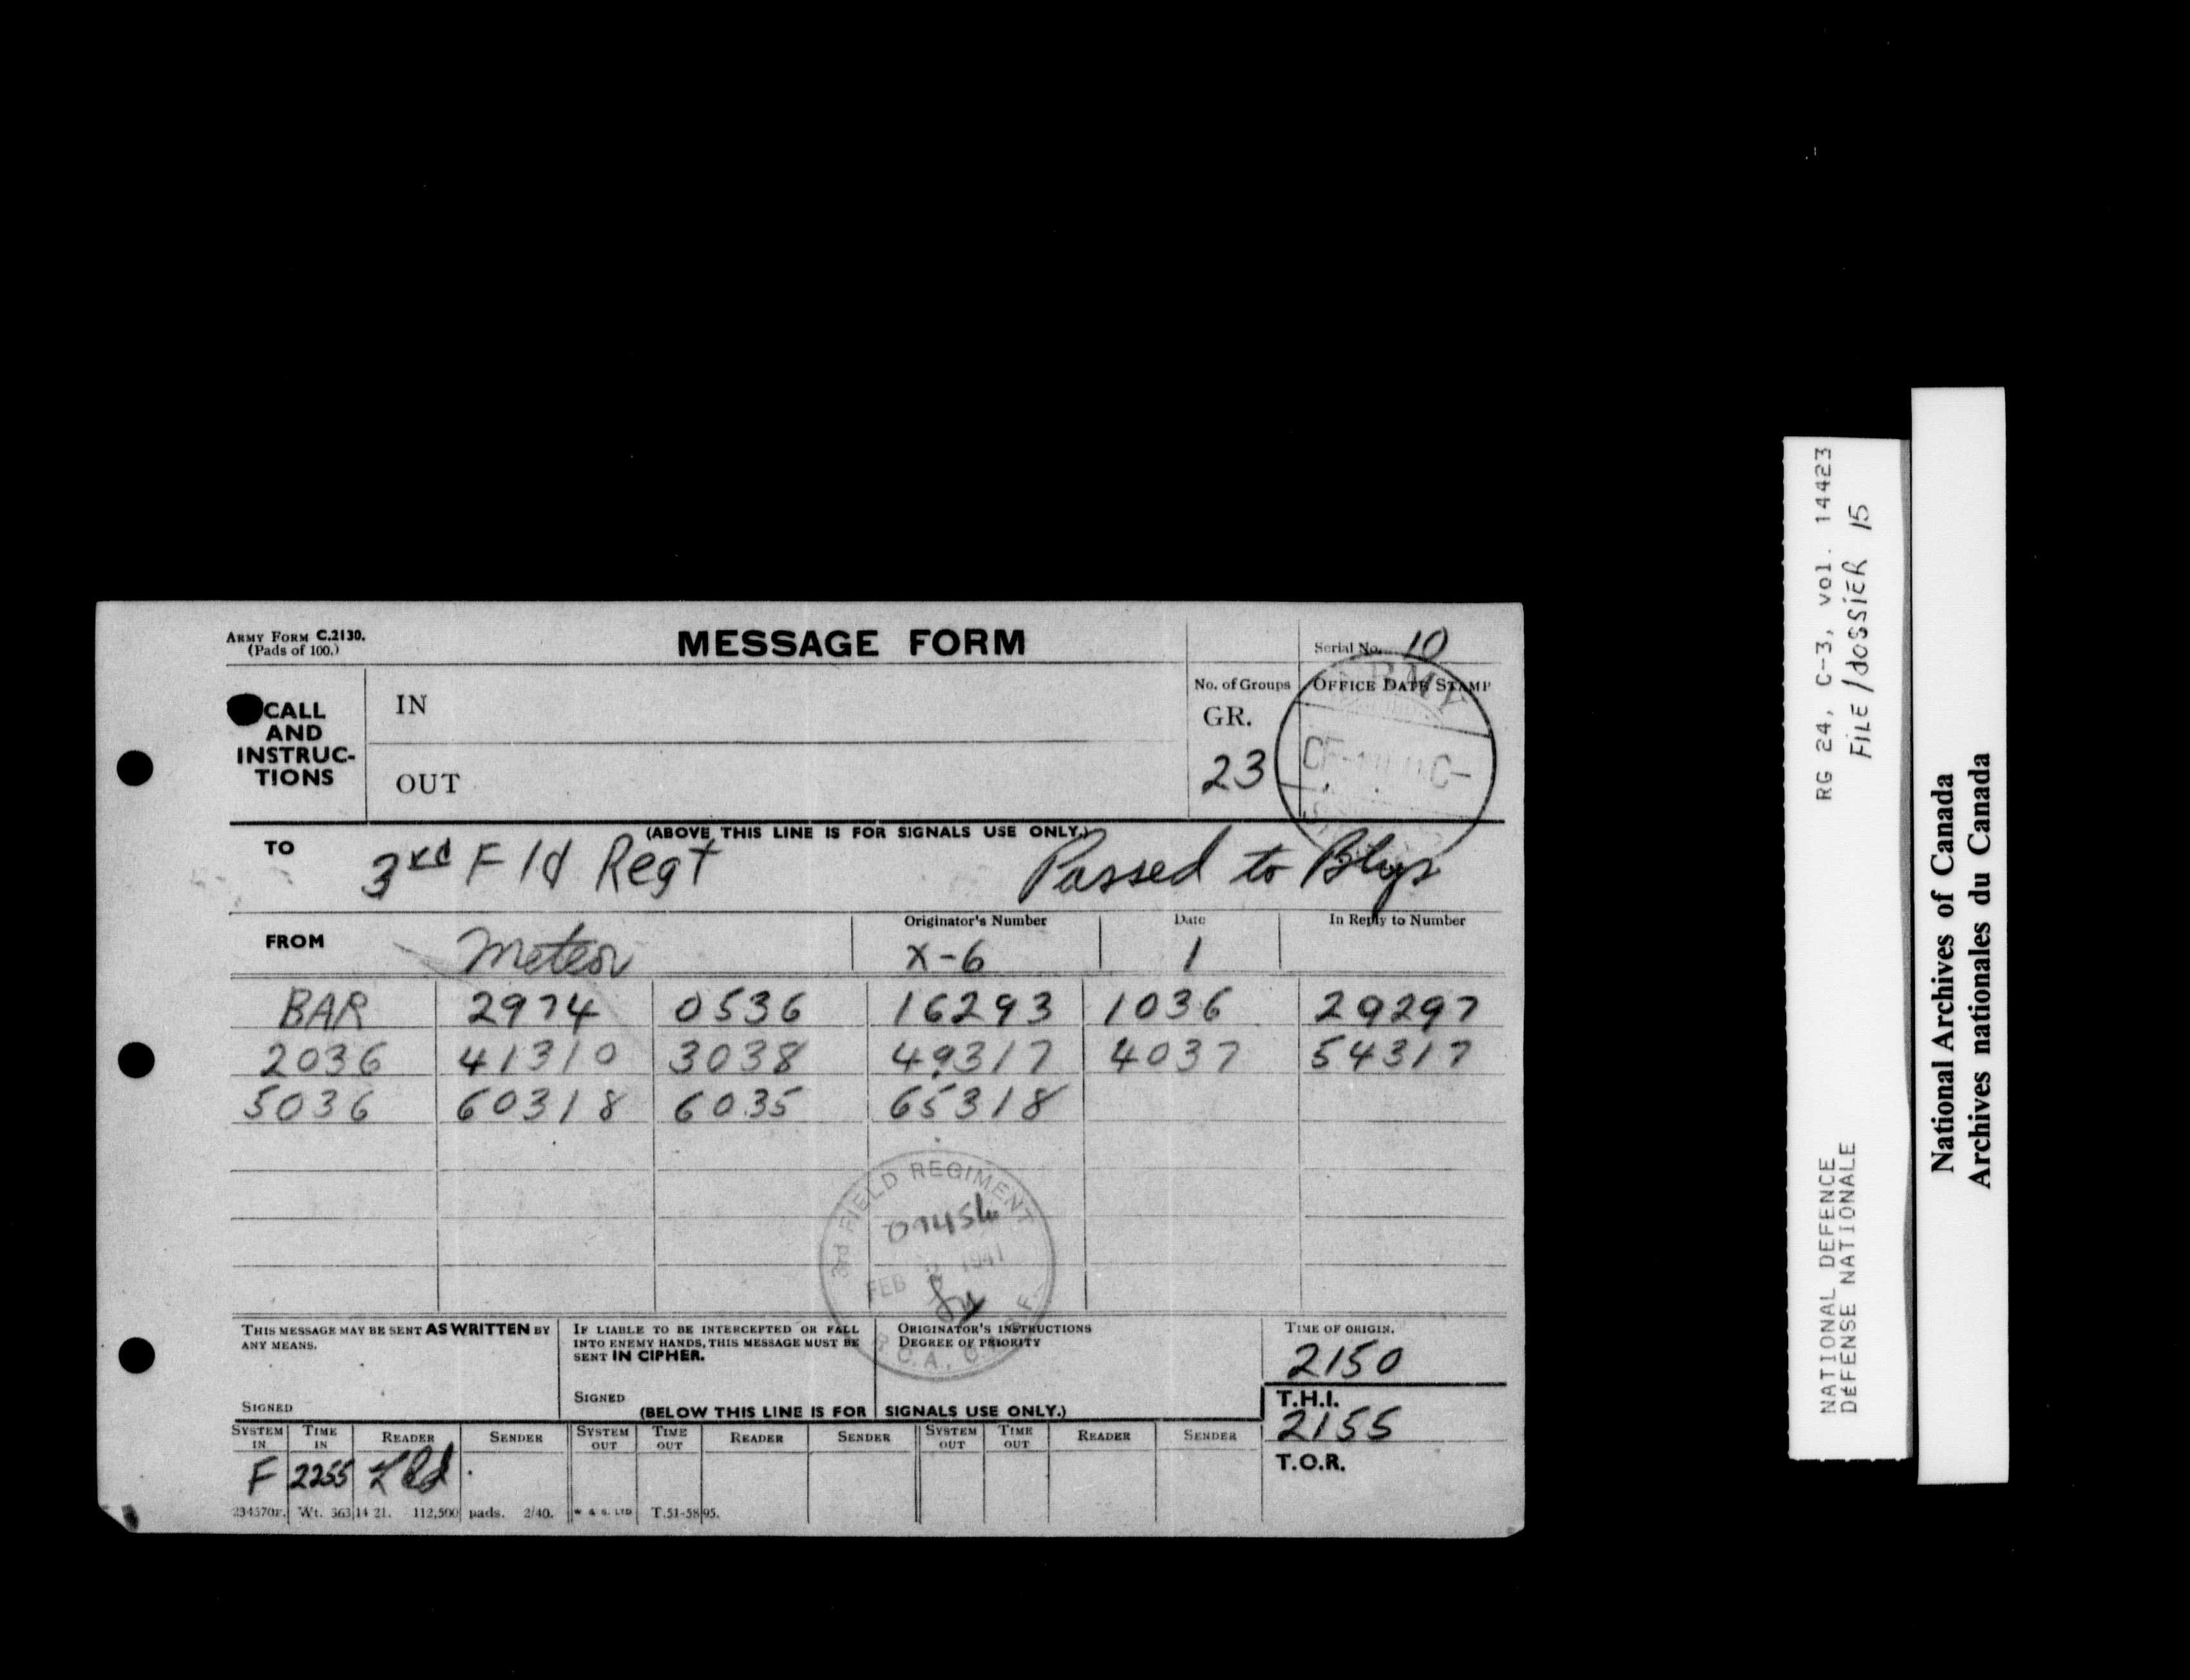 ARMY FORM C.2130.
(Pads of 100.)
MESSAGE FORM
Serial No. 10
CALL AND INSTRUC-TIONS
IN
OUT
No. of Groups
GR.
23
OFFICE DATE STAMP
ARMY
(ABOVE THIS LINE IS FOR SIGNALS USE ONLY.)
TO 3rd Fld Regt Passed to Btys
FROM Meteor
Originator's Number
X-6
Date
1
In Reply to Number
BAR 2974 0536 16293 1036 29297
2036 41310 3038 49317 4037 54317
5036 60318 6035 65318
3rd FIELD REGIMENT
0745h
FEB 1941
R.C.A., C.A.S.F.
THIS MESSAGE MAY BE SENT AS WRITTEN BY
ANY MEANS.
SIGNED
IF LIABLE TO BE INTERCEPTED OR FALL
INTO ENEMY HANDS, THIS MESSAGE MUST BE
SENT IN CIPHER.
SIGNED
ORIGINATOR'S INSTRUCTIONS
DEGREE OF PRIORITY
TIME OF ORIGIN.
2150
T.H.I.
2155
T.O.R.
(BELOW THIS LINE IS FOR SIGNALS USE ONLY.)
SYSTEM IN TIME IN READER SENDER SYSTEM OUT TIME OUT READER SENDER SYSTEM OUT TIME OUT READER SENDER
F 2255
234570F. Wt. 363 14 21. 112,500 pads. 2/40. W & S. LTD T.51-5895.
RG 24, C-3, vol. 14423
FILE/dOSSiER 15
NATIONAL DEFENCE
DéFENSE NATIONALE
National Archives of Canada
Archives nationales du Canada